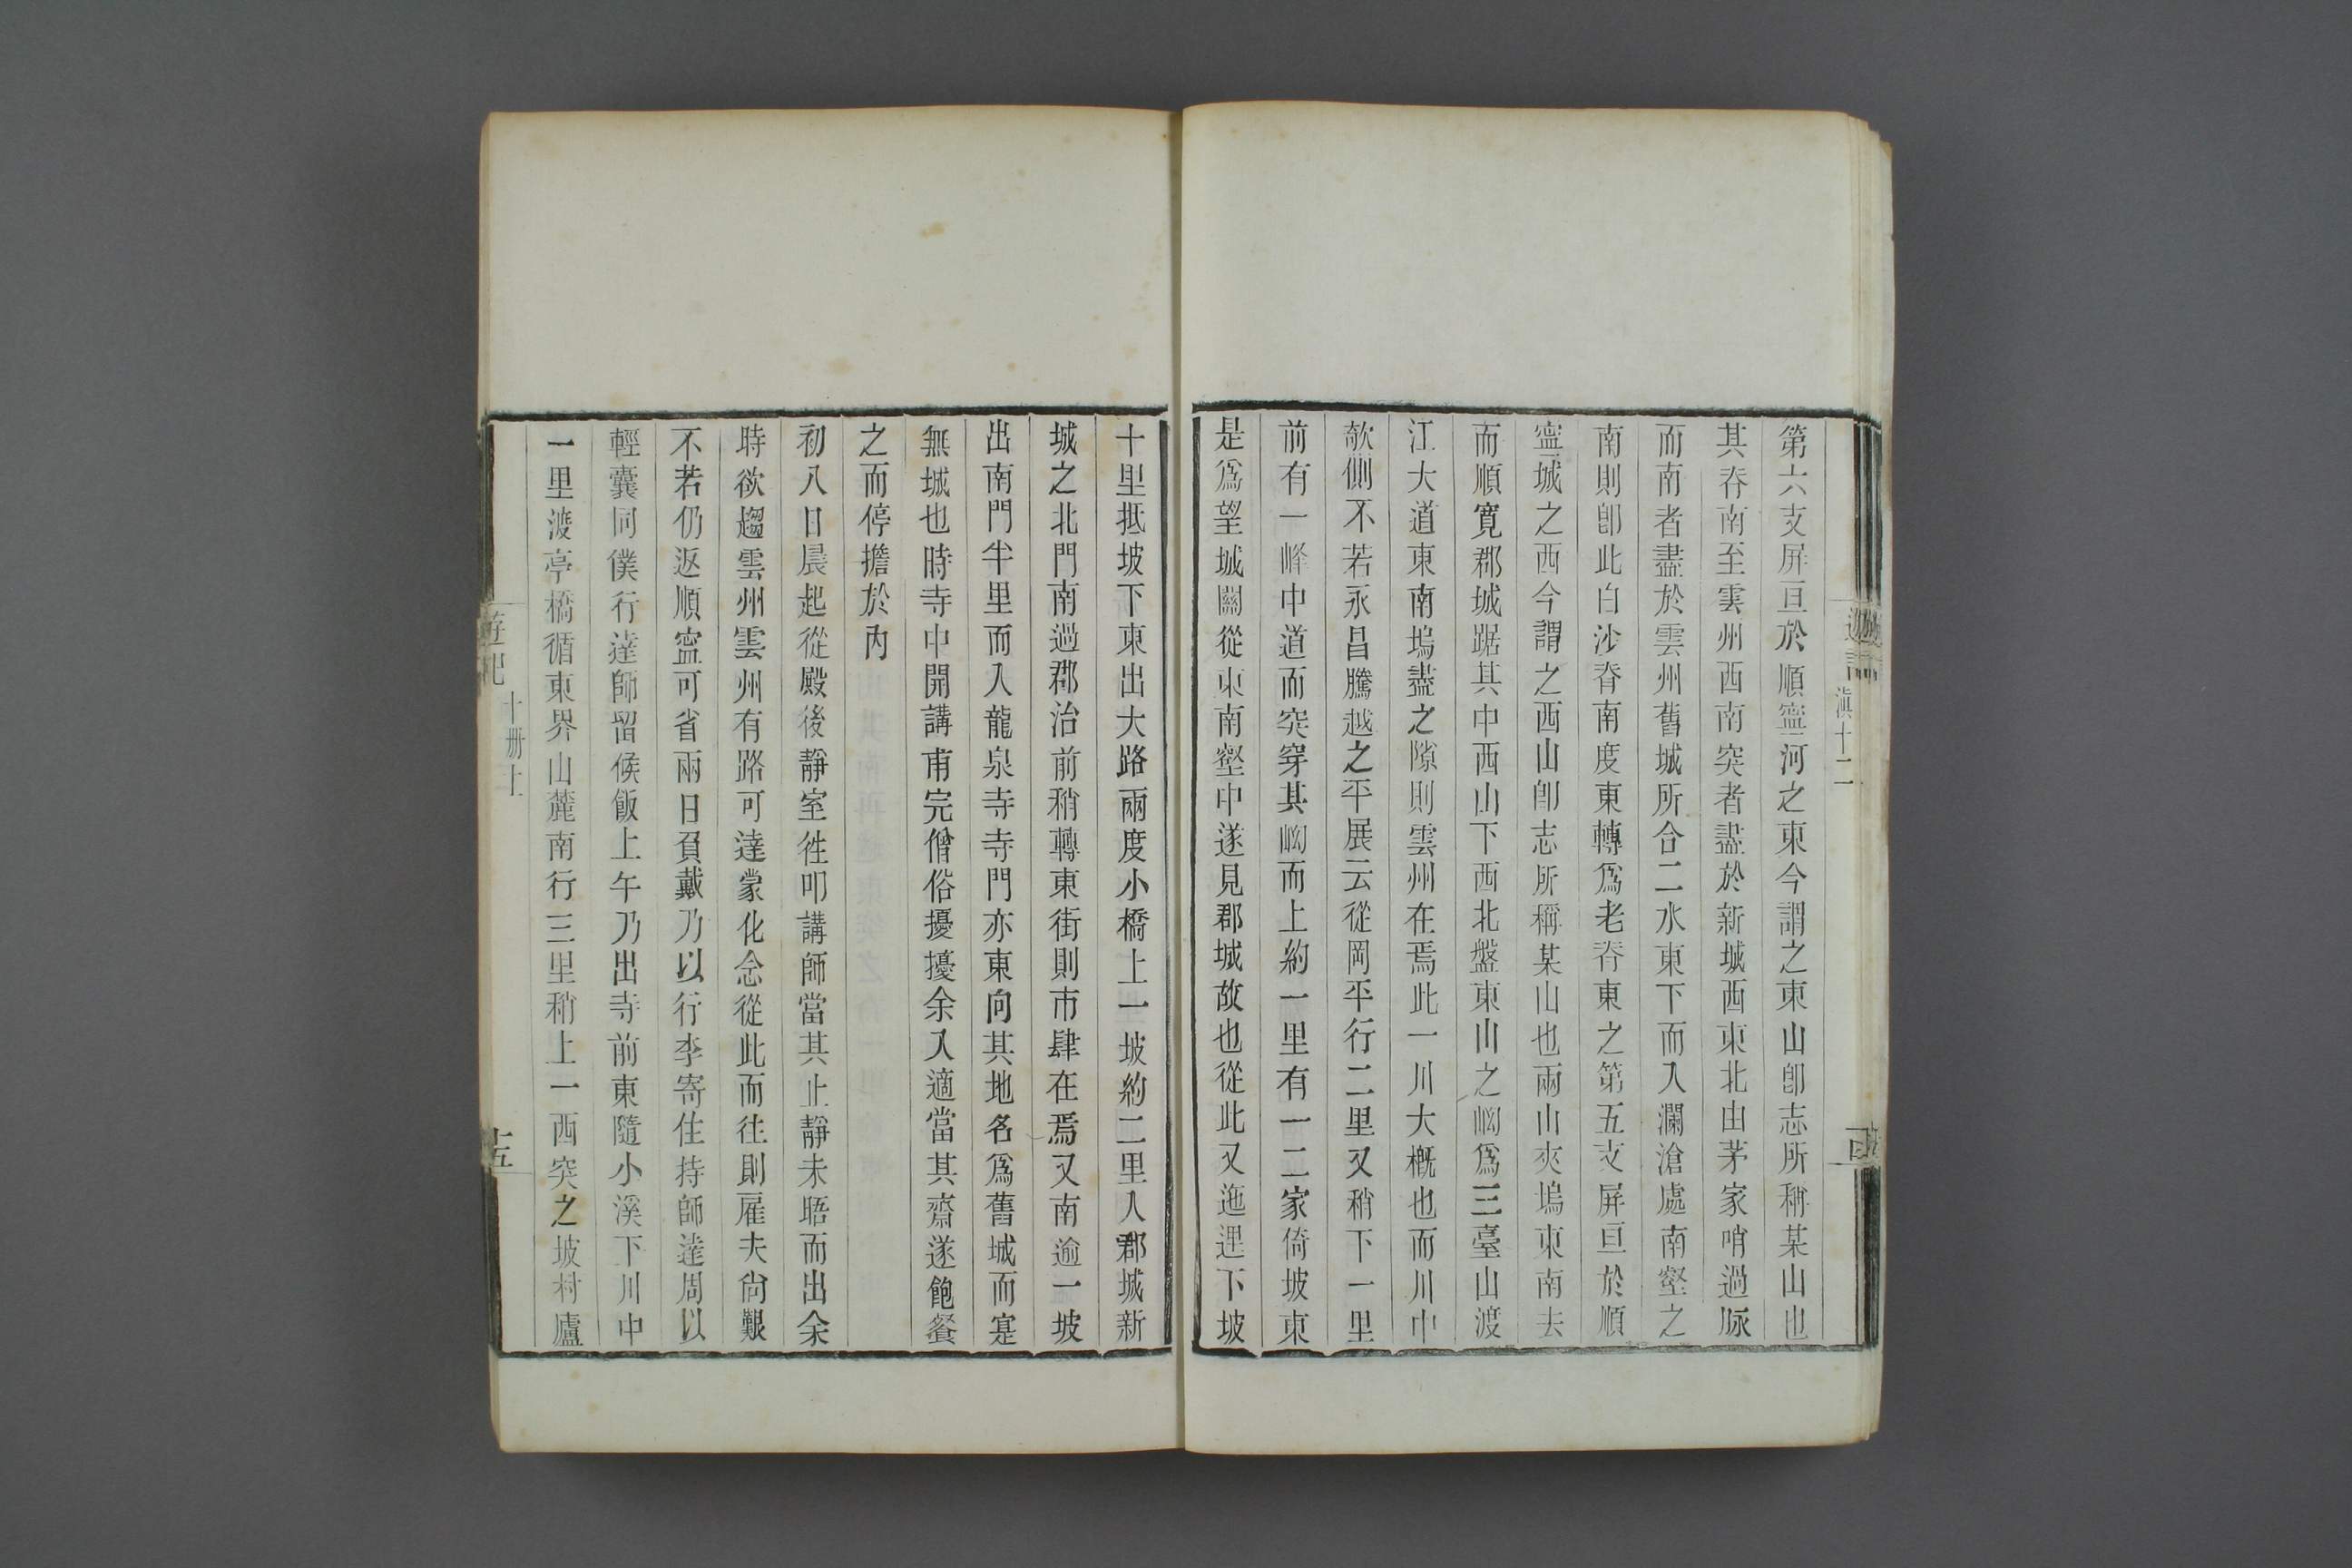 遊記
滇十二
第六支屏亘於順寍河之東今謂之東山卽志所稱某山也
其脊南至雲州西南突者盡於新城西東北由茅家哨過脉
而南者盡於雲州舊城所合二水東下而入瀾滄處南壑之
南則卽此白沙脊南度東轉爲老脊東之第五支屏亘於順
寍城之西今謂之西山卽志所稱某山也兩山夾塢東南去
而順寬郡城踞其中西山下西北盤東山之坳爲三臺山渡
江大道東南塢盡之隙則雲州在焉此一川大概也而川中
欹側不若永昌騰越之平展云從岡平行二里又稍下一里
前有一峰中道而突穿其坳而上約一里有一二家倚坡東
是爲望城關從東南壑中遂見郡城故也從此又迤邐下坡
十里抵坡下東出大路兩度小橋上一坡約二里入郡城新
城之北門南過郡治前稍轉東街則市肆在焉又南逾一坡
出南門半里而入龍泉寺寺門亦東向其地名爲舊城而寔
無城也時寺中開講甫完僧俗擾擾余入適當其齋遂飽餐
之而停擔於內
初八日晨起從殿後靜室徃叩講師當其止靜未晤而出余
時欲趨雲州雲州有路可達蒙化念從此而往則雇夫尙艱
不若仍返順寍可省兩日負戴乃以行李寄住持師達周以
輕囊同僕行達師留候飯上午乃出寺前東隨小溪下川中
一里渡亭橋循東界山麓南行三里稍上一西突之坡村廬
遊記
十册上
十五